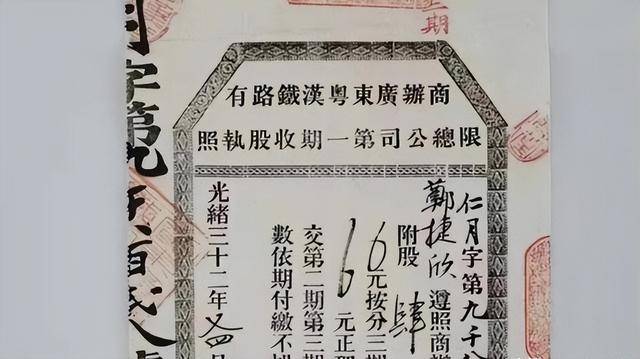 商辦廣東粵漢鐵路有
限總公司第一期收股執照
仁月字第九千
鄭捷欣遵照商
附股肆
6元按分三期
6元正
交第二期第三
數依期付繳不
光緒三十二年又四
字第九千百
期